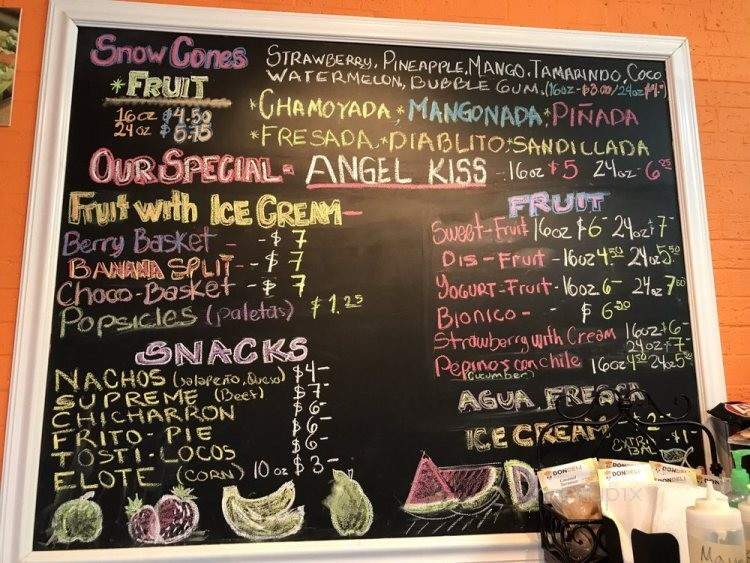 Snow Cones
STRAWBERRY, PINEAPPLE, MANGO, TAMARINDO, COCO,
WATERMELON, BUBBLE GUM. (16oz-$3.00/24oz $4.-)
*FRUIT
16oz $4.50
24oz $5.75
*CHAMOYADA*MANGONADA*PIÑADA
*FRESADA*DIABLITO*SANDILLADA
OUR SPECIAL- ANGEL KISS -16oz $5 24oz-6.25
Fruit with ICE CREAM-
Berry Basket - -$7
BANANA SPLIT- -$7
Choco-Basket - $7
Popsicles (paletas) $1.25
SNACKS
NACHOS (Jalapeño, Queso) $4-
SUPREME (Beef) $7-
CHICHARRON $6-
FRITO-PIE $6-
TOSTI-LOCOS $6-
ELOTE (CORN) 10oz $3-
FRUIT
Sweet-Fruit 16oz $6- 24oz $7-
Dis-Fruit-16oz 4.50 24oz 5.50
YOGURT-Fruit-16oz 6- 24oz 7.50
Bionico- - $6.50
Strawberry with Cream 16oz $6-
24oz $7-
Pepinos con chile 16oz 4.50 24oz 5.50
(cucumber)
AGUA FRESCA
ICE CREAM- 2-
EXTRA BALL $1-
DONDELI
DONDELI